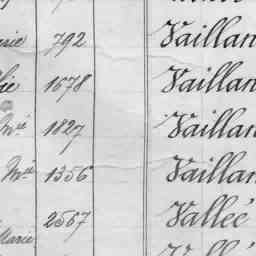 792 Vaillan
1678 Vaillan
1827 Vaillan
1356 Vaillan
2567 Vallée
Marie